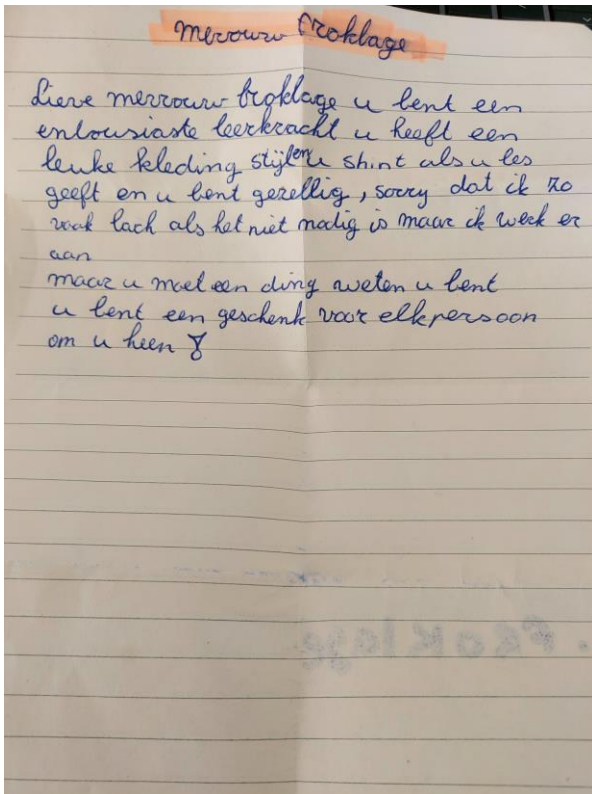 merrouw Froklage
Lieve merrouw froklage u bent een
entousiaste leerkracht u heeft een
leuke kleding stijl en u shint als u les
geeft en u bent gezellig, sorry dat ik zo
vaak lach als het niet nodig is maar ik werk er
aan
maar u moet een ding weten u bent
u bent een geschenk voor elk persoon
om u heen
. FROKlage